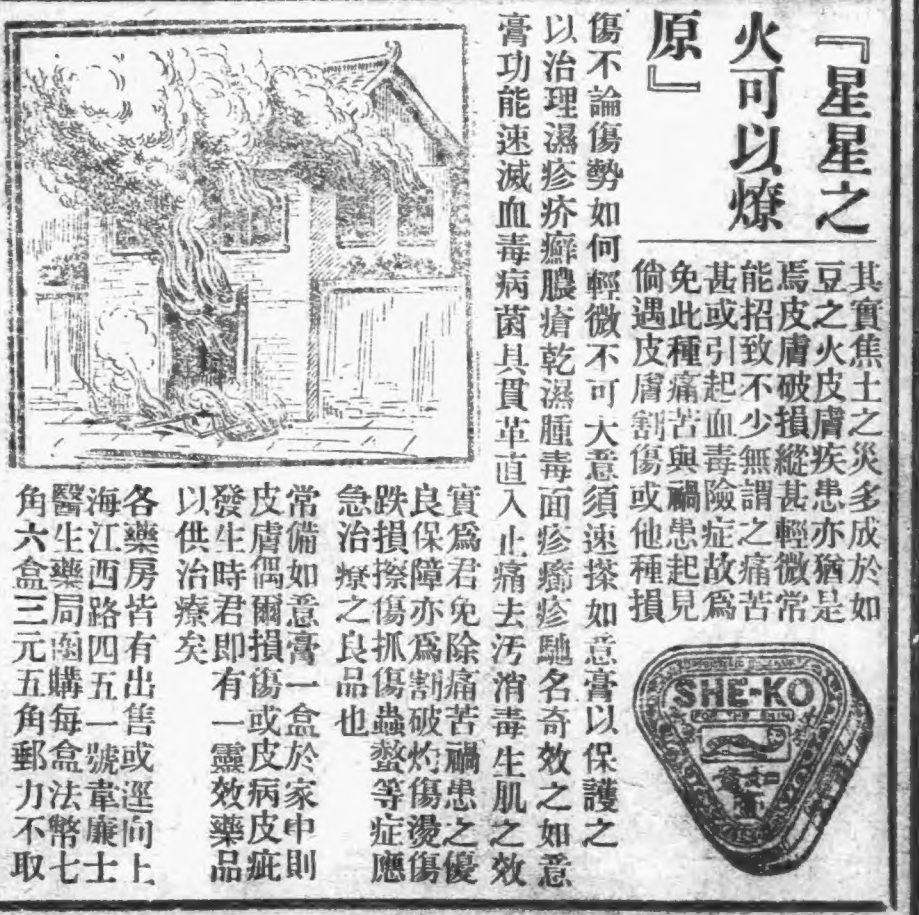 『星星之
火可以燎
原』
其實焦土之災多成於如
豆之火皮膚疾患亦猶是
焉皮膚破損縱甚輕微常
能招致不少無謂之痛苦
甚或引起血毒險症故為
免此種痛苦與禍患起見
倘遇皮膚割傷或他種損
傷不論傷勢如何輕微不可大意須速搽如意膏以保護之
以治理濕疹疥癬膿瘡乾濕腫毒面疹癤疹馳名奇效之如意
膏功能速滅血毒病菌具貫革直入止痛去汚消毒生肌之效
實為君免除痛苦禍患之優
良保障亦為割破灼傷燙傷
跌損擦傷抓傷蟲螫等症應
急治療之良品也
常備如意膏一盒於家中則
皮膚偶爾損傷或皮病皮疵
發生時君即有一靈效藥品
以供治療矣
各藥房皆有出售或逕向上
海江西路四五一號韋廉士
醫生藥局函購每盒法幣七
角六盒三元五角郵力不取
SHE-KO
FOR THE SKIN
如意膏